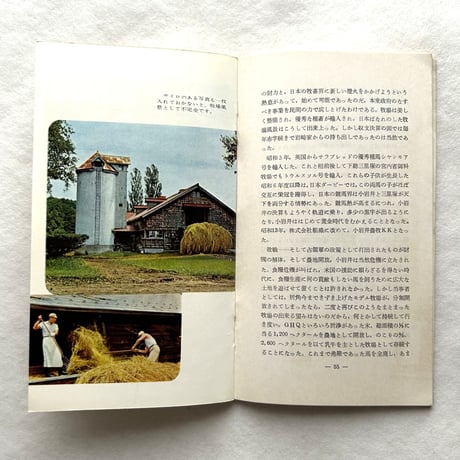 サイロのある写真も一枚
入れておかないと、牧場風
景として不完全です。
の財力と，日本の牧畜界に新しい燈火をかかげようという
熱意があって，始めて可能であったのだ。本来政府のなす
べき事業を民間の力で成しとげたわけである。牧場は美し
く整備され，優秀な種畜が輸入され，日本ばなれのした牧
場風景はこうして出来上った。しかし収支決算の面では爾
来赤字続きで岩崎家からの持出しであったのは当然であっ
た。
昭和3年，英国からサラブレッドの優秀種馬シャンモア
号を輸入した。これと相前後して下総三里塚の宮内省御料
牧場でもトウルヌソル号を輸入した。これらの子供が生長した
昭和6年度以降は，日本ダービーでは，この両馬の子がほぼ
交互に栄冠を獲得し，日本の競馬界は小岩井と三里塚が天下
を両分する情勢にあった。競馬熱が高まるにつれ，小岩
井の決算もようやく軌道に乗り，多少の黒字が出るようにな
り，小岩井ははじめて黄金時代をむかえることとなった。
昭和13年，株式会社組織に改めて，小岩井農牧KKとなっ
た。
敗戦――そして占領軍の政策として打出されたものが財
閥の解体，そして農地開放，小岩井は当然危機に立たされ
た。食糧危機が叫ばれ，米国の援助に頼らざるを得ない時
代に，食糧生産に何の貢献もしない馬を飼うために広大な
土地を遊ばせて置くことは許されなかった。しかし当事者
としては，折角今まで築き上げたモデル牧場が，分割開
放されてしまったなら，二度と再びこのようなまとまった
牧場の出来る望みはないのだから，何とかして持続して行
き度い。GHQといろいろ折渉があった末，総面積の外に
当る1,200ヘクタールを農地として開放し，のこりの外，
2,600ヘクタールを以て乳牛を主とした牧場として存続す
ることとなった。これまで虎籠であった馬を全廃し，あま
― 55 ―